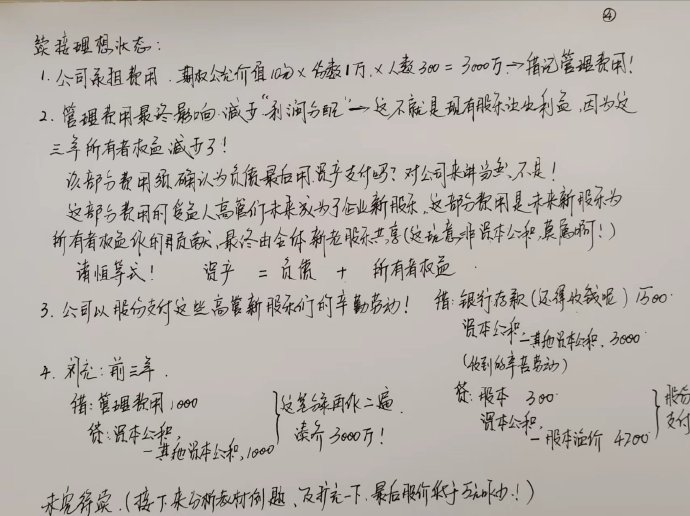 ④
续接理想状态：
1. 公司承担费用. 期权公允价值10元×份数1万×人数300=3000万→借记管理费用！
2. 管理费用最终影响.减少"利润分配"—这不就是现有股东让出利益，因为这
三年所有者权益减少了！
该部分费用须确认为负债最后用资产支付吗？对公司来讲当然不是！
这部分费用的受益人高管们未来成为了企业新股东，这部分费用是未来新股东为
所有者权益作的贡献，最终由全体新老股东共享(这培育非资本公积,莫属啊！)
请恒等式！ 资产 = 负债 + 所有者权益
3. 公司以股份支付这些高管新股东们的辛勤劳动！
借：银行存款(还得收钱呢) 1500
资本公积—其他资本公积. 3000
(收到的辛苦劳动)
贷：股本 300
资本公积—股本溢价 4200
股份支付
4. 补充：前三年.
借：管理费用 1000
贷：资本公积—其他资本公积. 1000
这笔分录再作二遍.
凑齐3000万！
未完待续.(接下来分析教材例题，及扩充一下.最后股价低于5元咋办！)